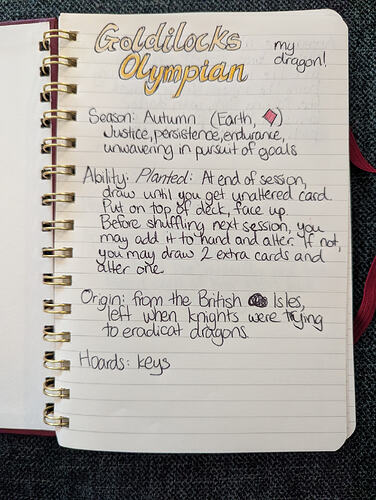 Goldilocks
Olympian
my
dragon!
Season: Autumn (Earth, ♦)
Justice, persistence, endurance,
unwavering in pursuit of goals
Ability: Planted: At end of session,
draw until you get unaltered card.
Put on top of deck, face up.
Before shuffling next session, you
may add it to hand and alter. If not,
you may draw 2 extra cards and
alter one.
Origin: from the British Isles,
left when knights were trying
to eradicat dragons
Hoards: keys